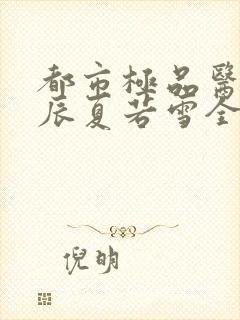 都市極品醫
辰夏若雪全
倪明